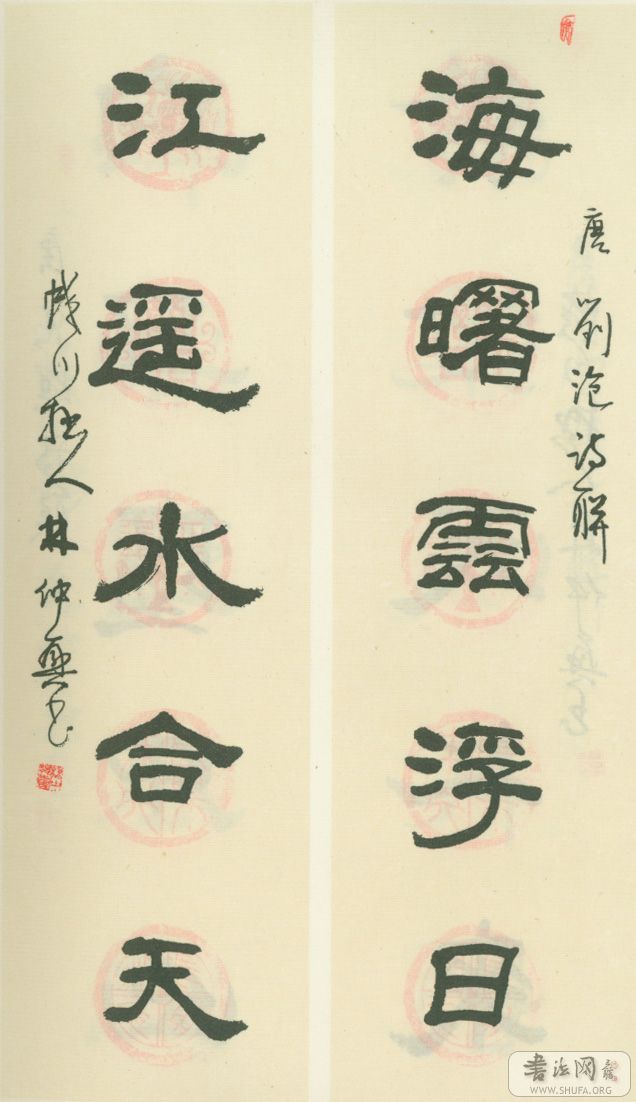 唐劉沧诗聯
海曙雲浮日
江遥水合天
川拙人林仲興书
書法网
WWW.SHUFA.ORG